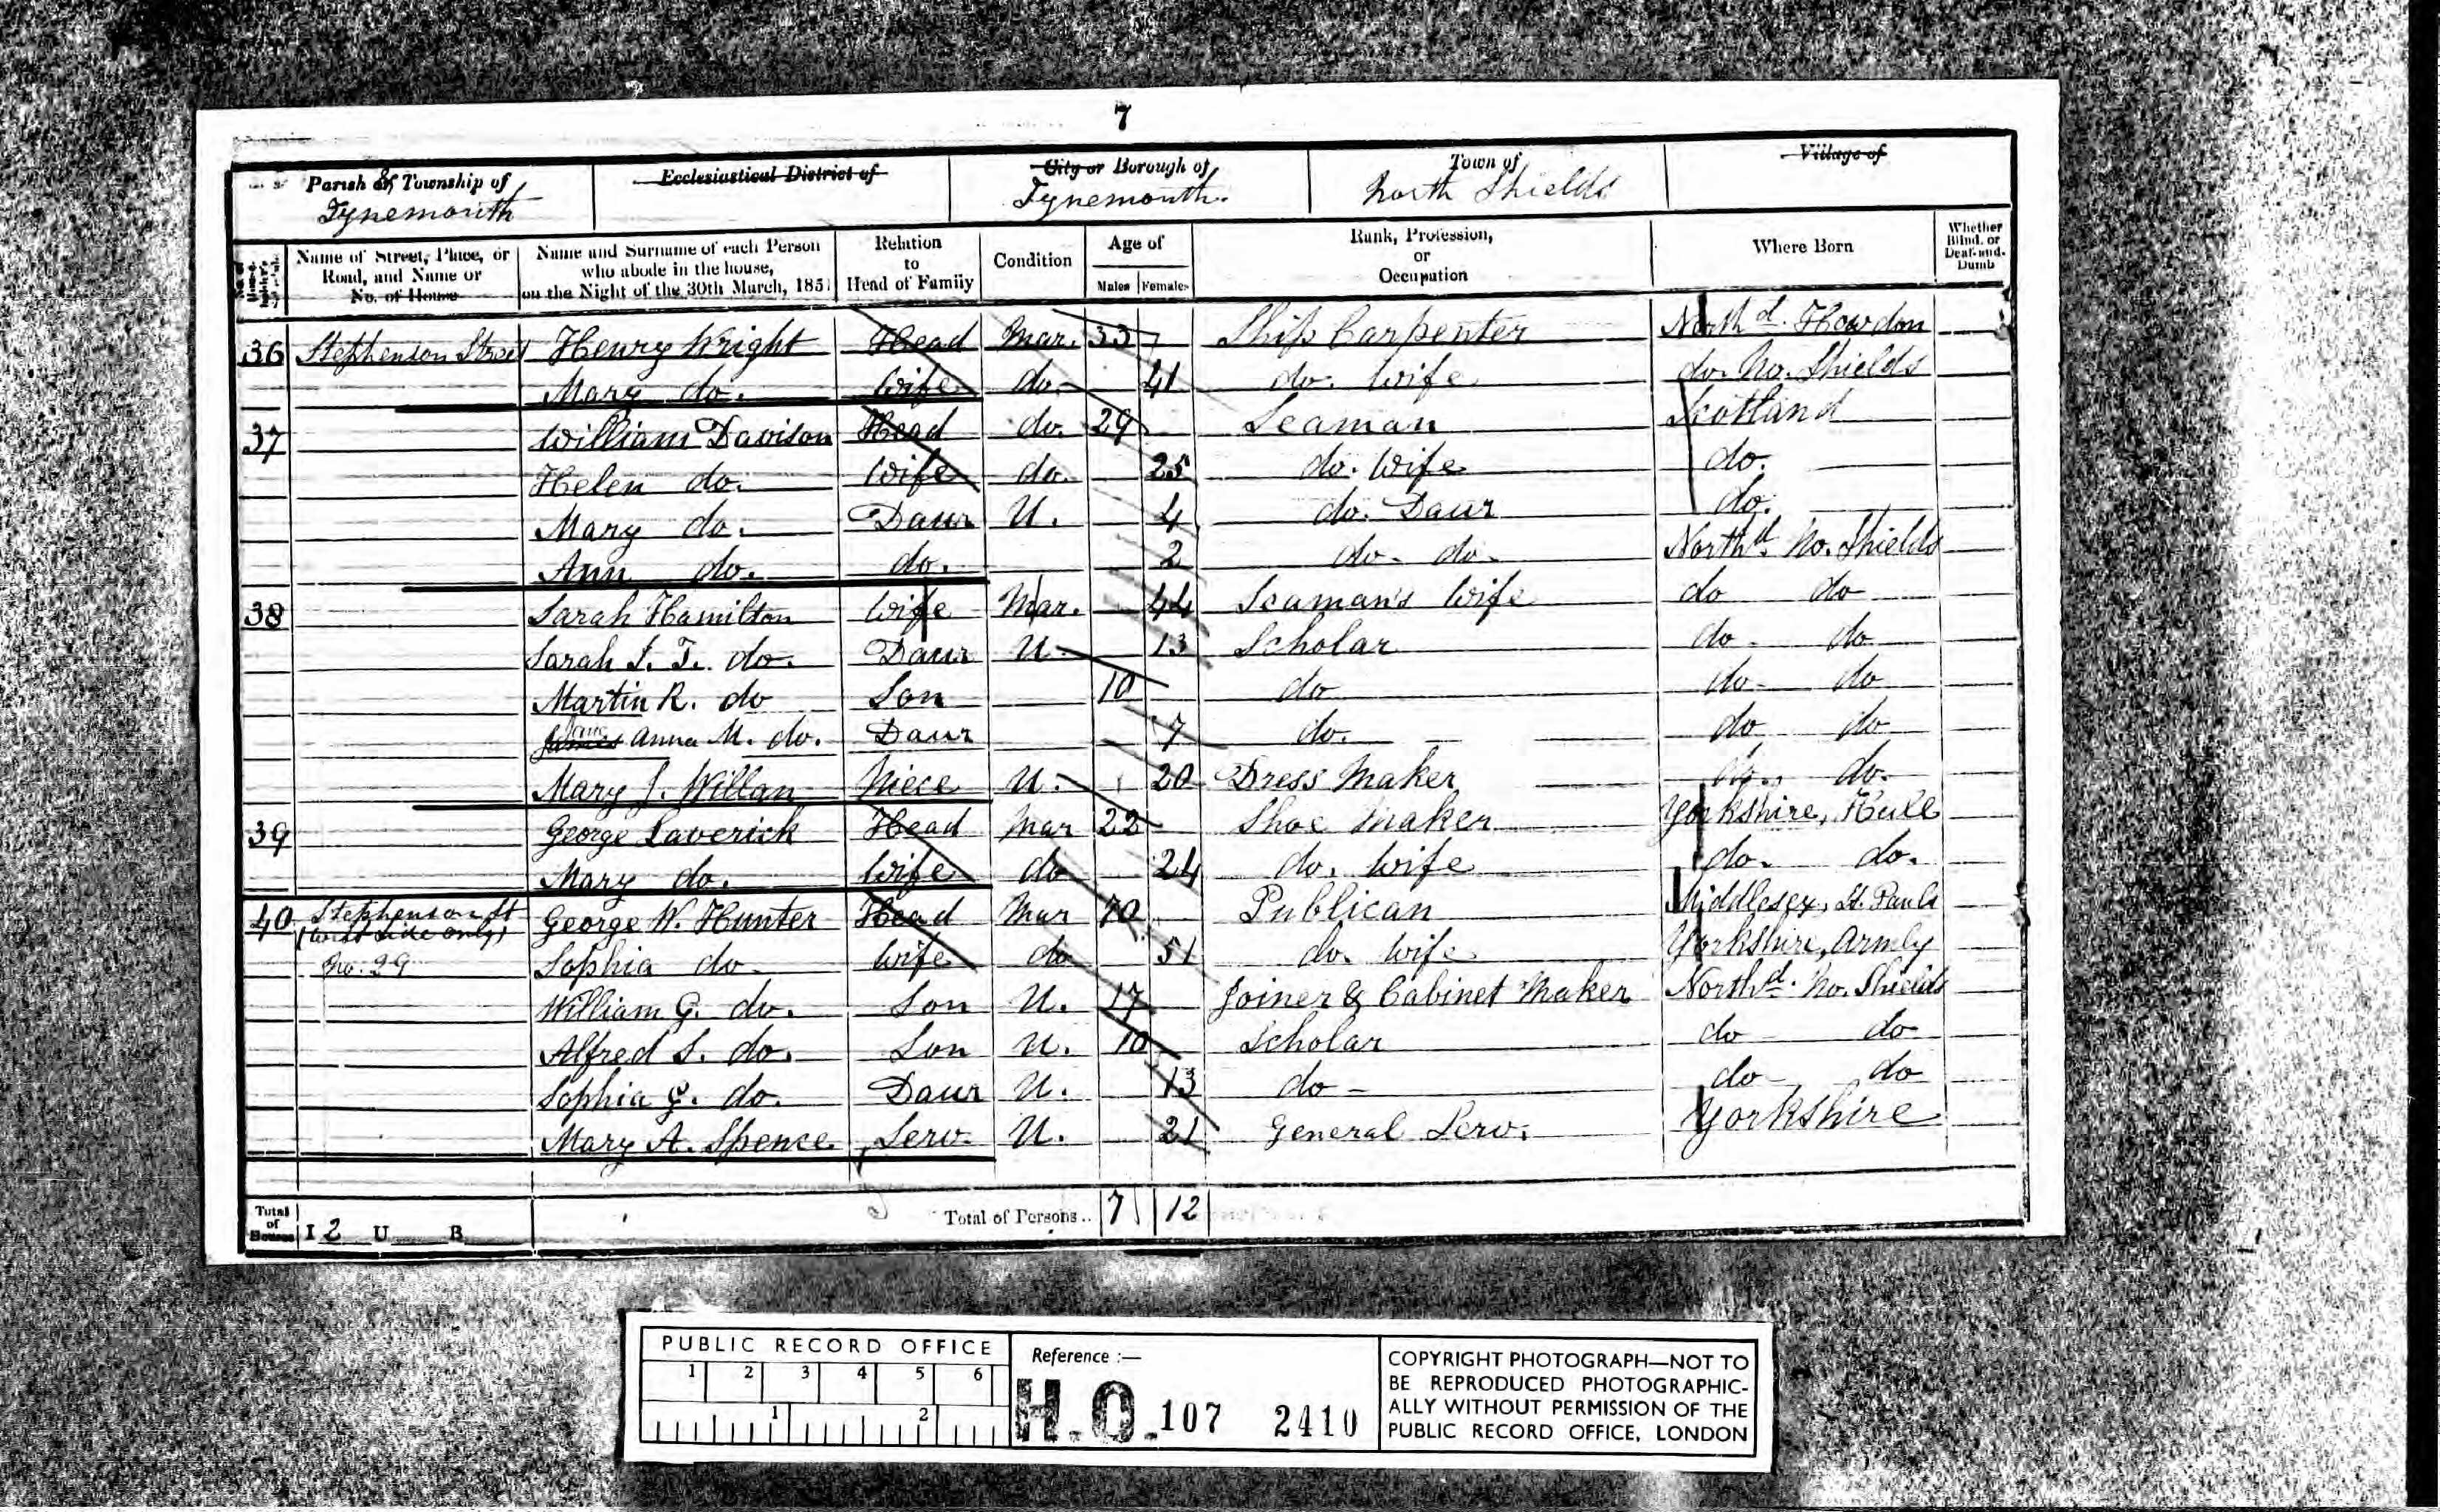 7
Parish or Township of Ecclesiastical District of City or Borough of Town of Village of
Tynemouth Tynemouth. North Shields
Name of Street, Place, or Road, and Name or No. of House
Name and Surname of each Person who abode in the house, on the Night of the 30th March, 1851
Relation to Head of Family
Condition
Age of
Males Females
Rank, Profession, or Occupation
Where Born
Whether Blind, or Deaf-and-Dumb
36 Stephenson Street Henry Wright Head Mar. 33 Ship Carpenter Northd. Howdon
Mary do. Wife do. 41 do. Wife do. No. Shields
37 William Davison Head do. 29 Seaman Scotland
Helen do. Wife do. 25 do. Wife do.
Mary do. Daur U. 4 do. Daur do.
Ann do. do. 2 do. do. Northd. No. Shields
38 Sarah Hamilton Wife Mar. 44 Seaman's Wife do do
Sarah I. T. do. Daur U. 13 Scholar do do
Martin R. do Son 10 do do do
James Jane Anna M. do. Daur 7 do. do do
Mary J. Willan Niece U. 20 Dress Maker do. do.
39 George Laverick Head Mar 22 Shoe Maker Yorkshire, Hull
Mary do. Wife do 24 do. Wife do. do.
40 Stephenson St George W. Hunter Head Mar 70 Publican Middlesex, St. Pauls
(West side only) No. 29 Sophia do. Wife do 51 do. Wife Yorkshire, Armly
William G. do. Son U. 17 Joiner & Cabinet Maker Northd. No. Shields
Alfred S. do. Son U. 10 Scholar do do
Sophia G. do. Daur U. 13 do do do
Mary A. Spence Serv. U. 21 General Serv. Yorkshire
Total of Houses I 2 U B Total of Persons.. 7 12
PUBLIC RECORD OFFICE
1 2 3 4 5 6
1 2
Reference :—
H.O. 107 2410
COPYRIGHT PHOTOGRAPH—NOT TO
BE REPRODUCED PHOTOGRAPHIC-
ALLY WITHOUT PERMISSION OF THE
PUBLIC RECORD OFFICE, LONDON